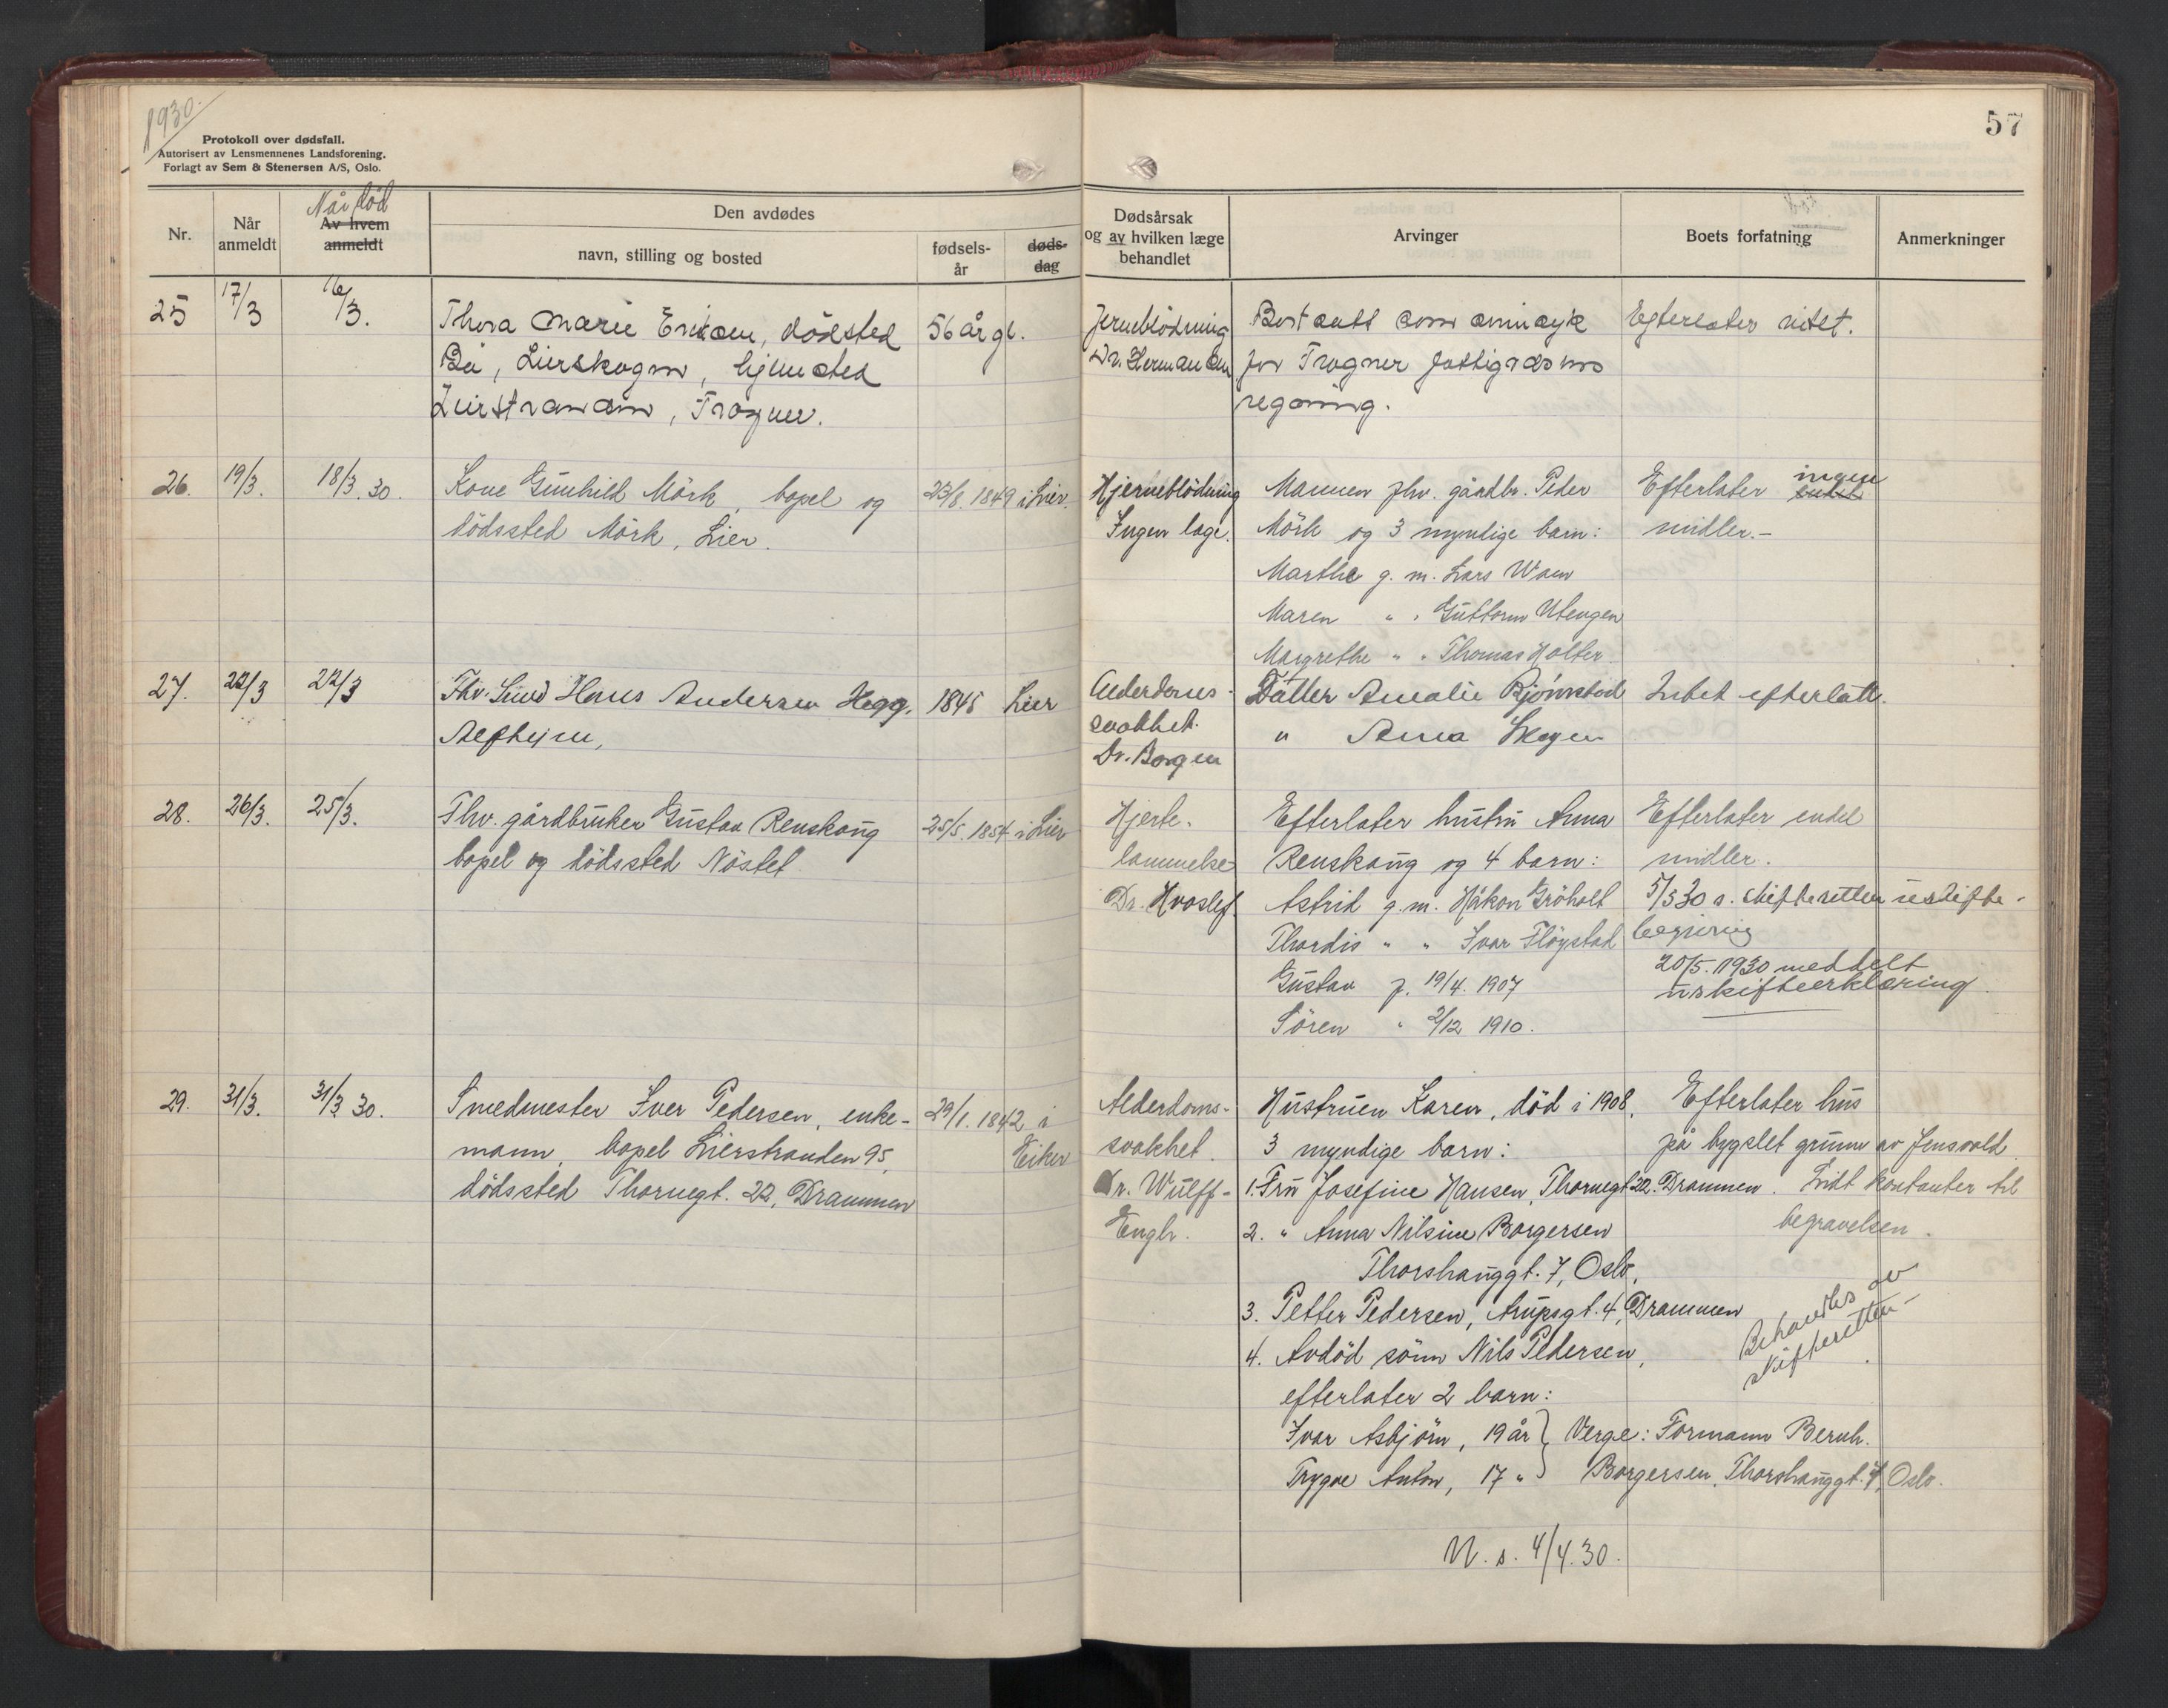 1930.
Protokoll over dødsfall.
Autorisert av Lensmennenes Landsforening.
Forlagt av Sem & Stenersen A/S, Oslo.
57
Nr.
Når anmeldt
Når død
Av hvem anmeldt
Den avdødes
navn, stilling og bosted
fødsels-år
døds-dag
Dødsårsak og av hvilken læge behandlet
Arvinger
Boets forfatning
Anmerkninger
25 17/3 16/3. Thora Marie Eriksen, dödsted 56 år gl.
Bö, Lierskogen, hjemsted
Lierstranden, Frogner.
Jerneblödning
Dr. Hermansen
Bortsatt som
for Frogner fattigvæsens
regning.
Efterlater intet.
26. 19/3. 18/3.30. Kone Gunhild Mörk, bopel og 23/8.1849 i Lier.
dödssted Mörk, Lier.
Hjerneblödning
Ingen læge.
Mannen fhv. gårdbr. Peder
Mörk og 3 myndige barn:
Marthe g. m. Lars Waen
Maren " " Guttorm Utengen
Margrethe " " Thomas Holter.
Efterlater ingen
midler.-
27. 22/3 22/3 Fhv. Hans Andersen Hegg, 1845 Lier
Alderdoms-
svakhet.
Dr. Borgen
Datter Amalie Björnstad
" Anna Skogen
Intet efterlatt.
28. 26/3. 25/3. Fhv. gårdbruker Gustav Renskaug 25/5.1854 i Lier
bopel og dödssted Nöstet.
Hjerte-
lammelse
Dr. Hvoslef.
Efterlater hustru Anna
Renskaug og 4 barn:
Astrid g.m. Håkon Gröholt
Thordis " " Ivar Flögstad
Gustav f. 19/4. 1907
Sören " 2/12 1910.
Efterlater endel
midler.
5/5 30 s. skifteretten uskifte-
begjering
20/5.1930 meddelt
uskifteerklæring.
29. 31/3. 31/3 30. Smedmester Iver Pedersen, enke- 29/1.1842 i
mann, bopel Lierstranden 95, Eiker
dödssted Thornegt. 22, Drammen
Alderdoms-
svakhet.
Dr. Wulff-
Engh.
Hustruen Karen, död i 1908.
3 myndige barn:
1. Fru Josefine Hansen, Thornegt 22. Drammen.
2. " Anna Nilsine Borgersen
Thorshauggt. 7, Oslo,
3. Petter Pedersen, Arupsgt. 4, Drammen
4. Avdöd sönn Nils Pedersen,
efterlater 2 barn:
Ivar Asbjörn, 19 år } Verge: Formann Bernh.
Trygve Anton, 17 " } Borgersen, Thorshauggt. 7, Oslo.
Efterlater hus
på bygslet grunn av Jensvold.
Lidt kontanter til
begravelsen.
Behandles av
skifteretten-
N. s. 4/4.30.